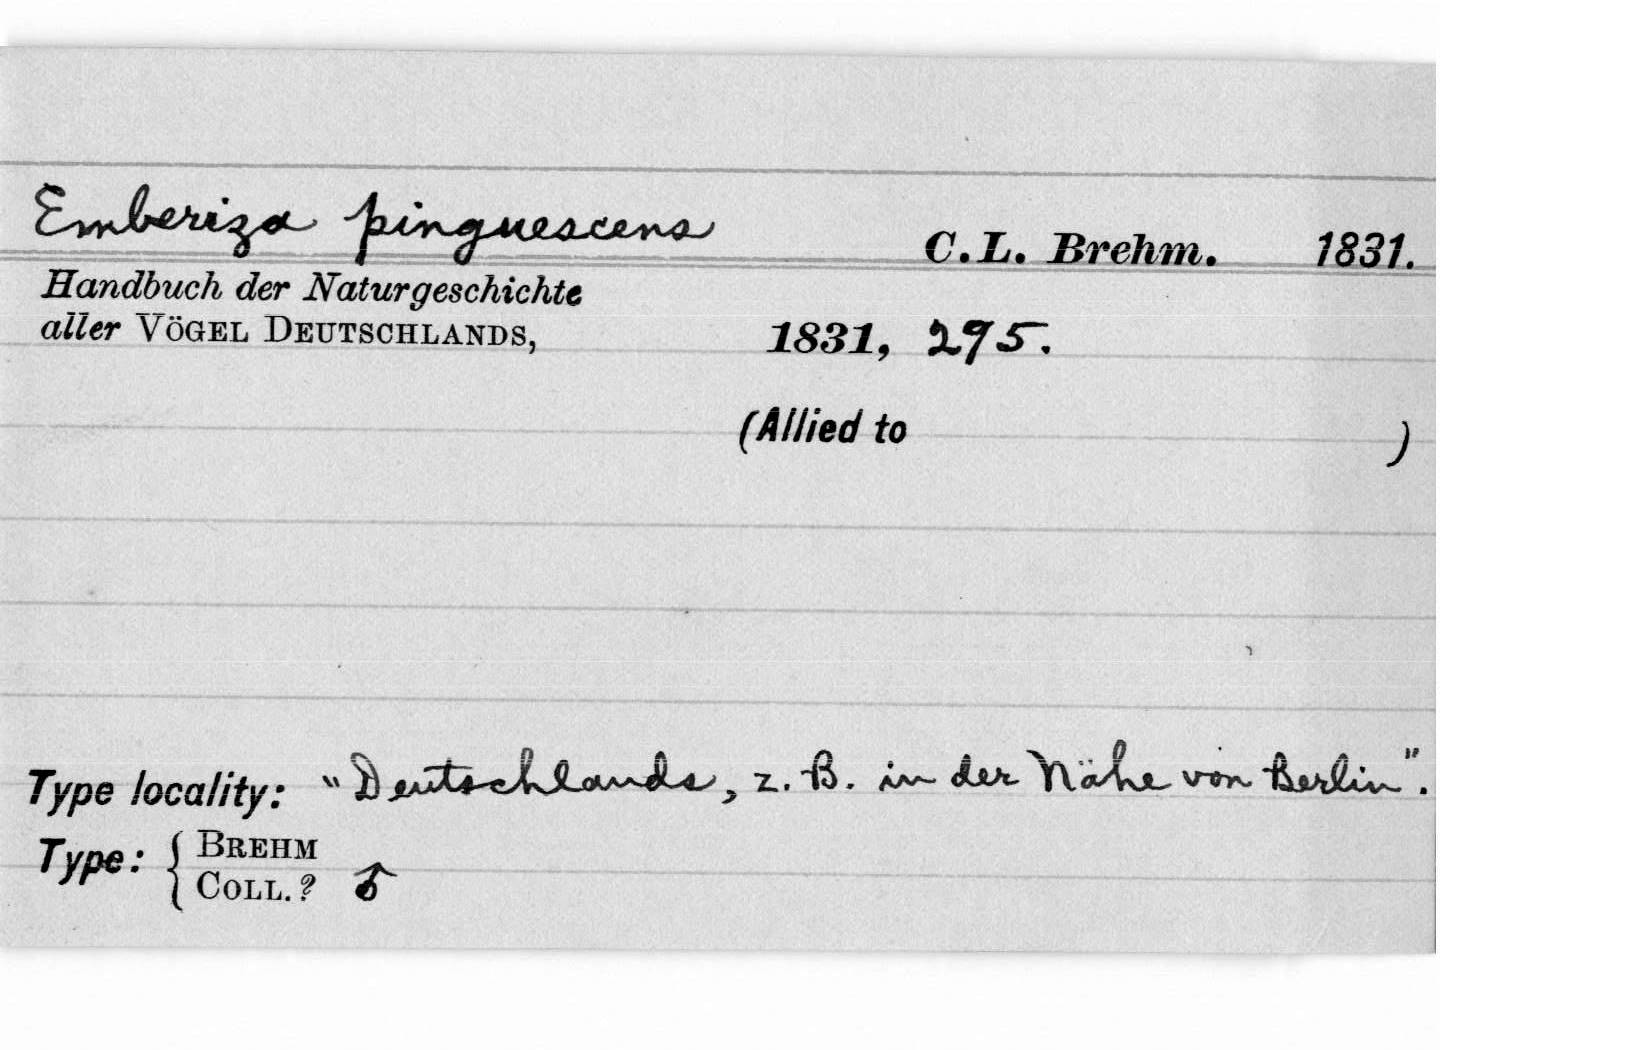 Emberiza pinguescens C. L. Brehm. 1831.
Handbuch der Naturgeschichte
aller VÖGEL DEUTSCHLANDS, 1831, 295.
(Allied to )
Type locality: "Deutschlands, z. B. in der Nähe von Berlin".
Type: { BREHM
COLL. ? ♂